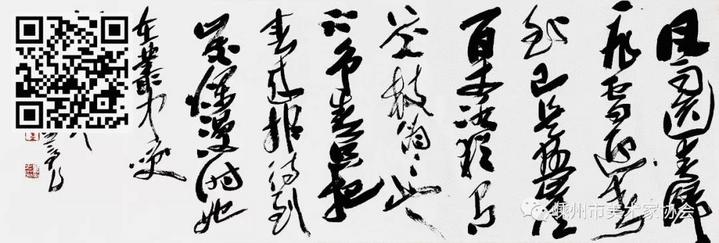 风雨送春归
飞雪迎春到
已是悬崖
百丈冰犹有
花枝俏俏也
不争春只把
春来报待到
山花烂漫时她
在丛中笑
嵊州市美术家协会